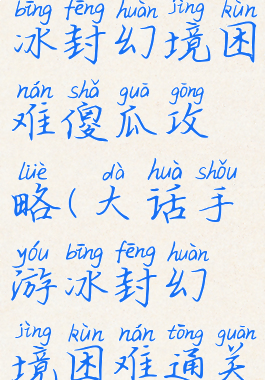 bīng fēng huàn jìng kùn
冰封幻境困
nán shǎ guā gōng
难傻瓜攻
lüè dà huà shǒu
略(大话手
yóu bīng fēng huàn
游冰封幻
jìng kùn nán tōng guān
境困难通关